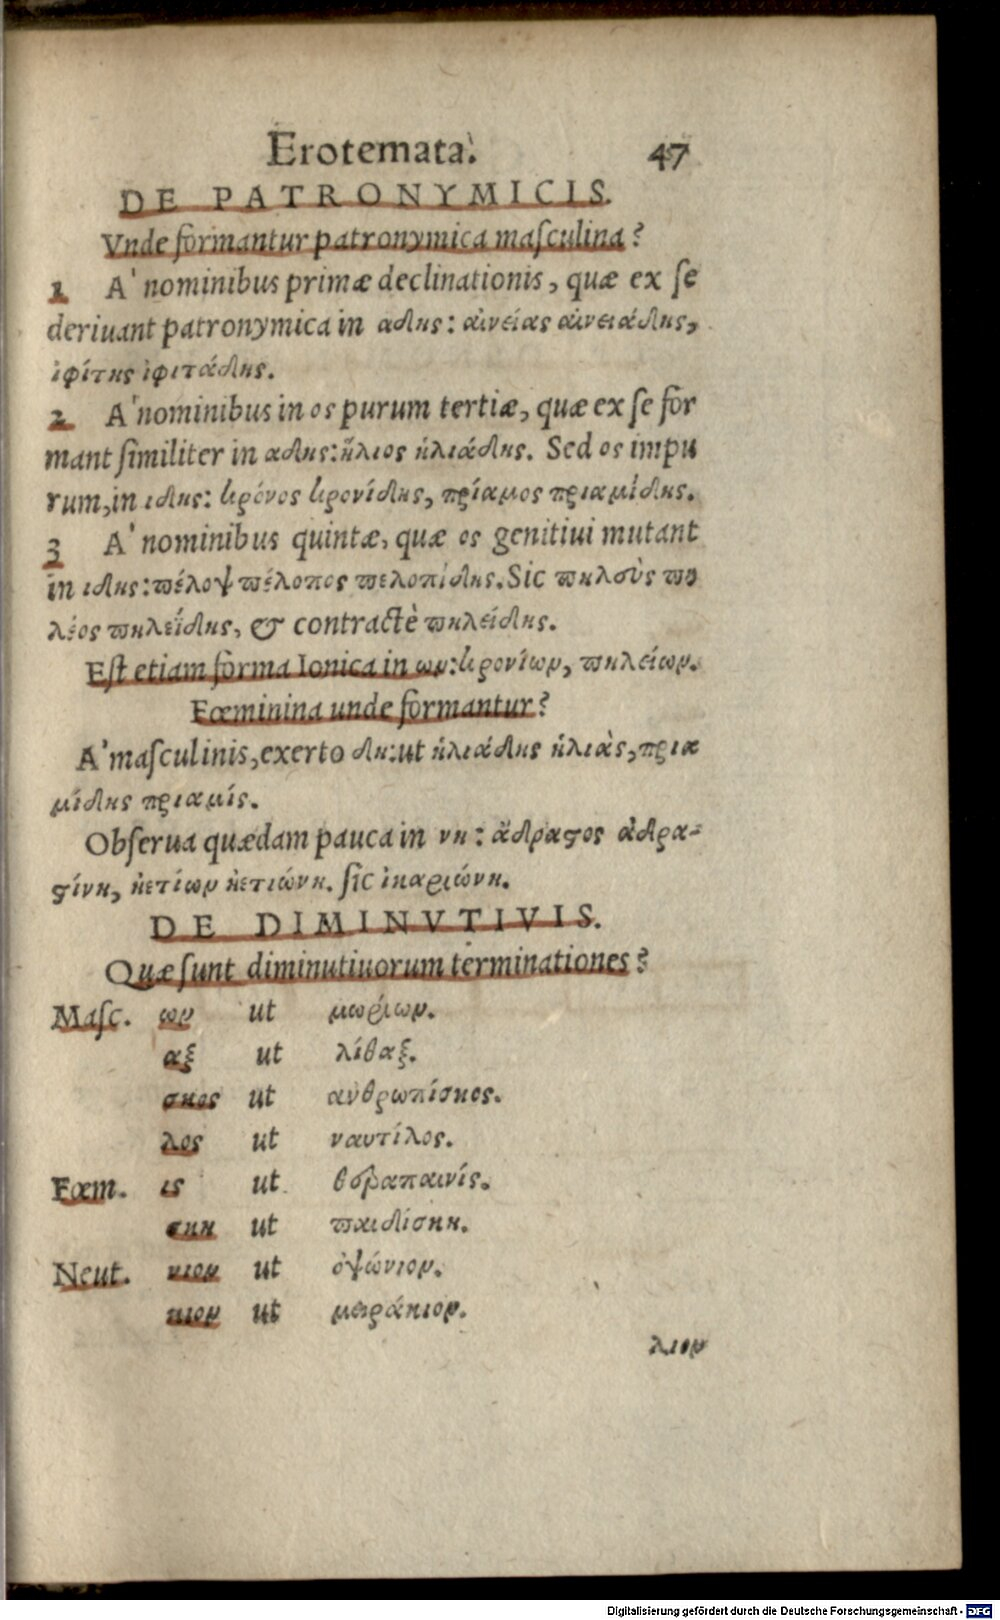 Erotemata. 47
DE PATRONYMICIS.
Vnde formantur patronymica masculina?
1 A' nominibus primæ declinationis, quæ ex se
deriuant patronymica in αδης: αἰνείας αἰνειάδης,
ἰφίτης ἰφιτάδης.
2 A' nominibus in ος purum tertiæ, quæ ex se for
mant similiter in αδης: ἥλιος ἡλιάδης. Sed ος impu
rum, in ιδης: κρόνος κρονίδης, πρίαμος πριαμίδης.
3 A' nominibus quintæ, quæ ος genitiui mutant
in ιδης: πέλοψ πέλοπος πελοπίδης. Sic πηλεὺς πη
λέος πηλεΐδης, & contractè πηλείδης.
Est etiam forma Ionica in ων: κρονίων, πηλείων.
Fœminina unde formantur?
A' masculinis, exerto δη: ut ἡλιάδης ἡλιὰς, πρια
μίδης πριαμίς.
Obserua quædam pauca in νη: ἄδραστος ἀδρα-
στίνη, ἠετίων ἠετιώνη. sic ἰκαριώνη.
DE DIMINVTIVIS.
Quæ sunt diminutiuorum terminationes?
Masc. ων ut μωρίων.
αξ ut λίθαξ.
σκος ut ανθρωπίσκος.
λος ut ναυτίλος.
Fœm. ις ut θεραπαινίς.
σκη ut παιδίσκη.
Neut. νιον ut ὀψώνιον.
κιον ut μειράκιον.
λιον
Digitalisierung gefördert durch die Deutsche Forschungsgemeinschaft - DFG